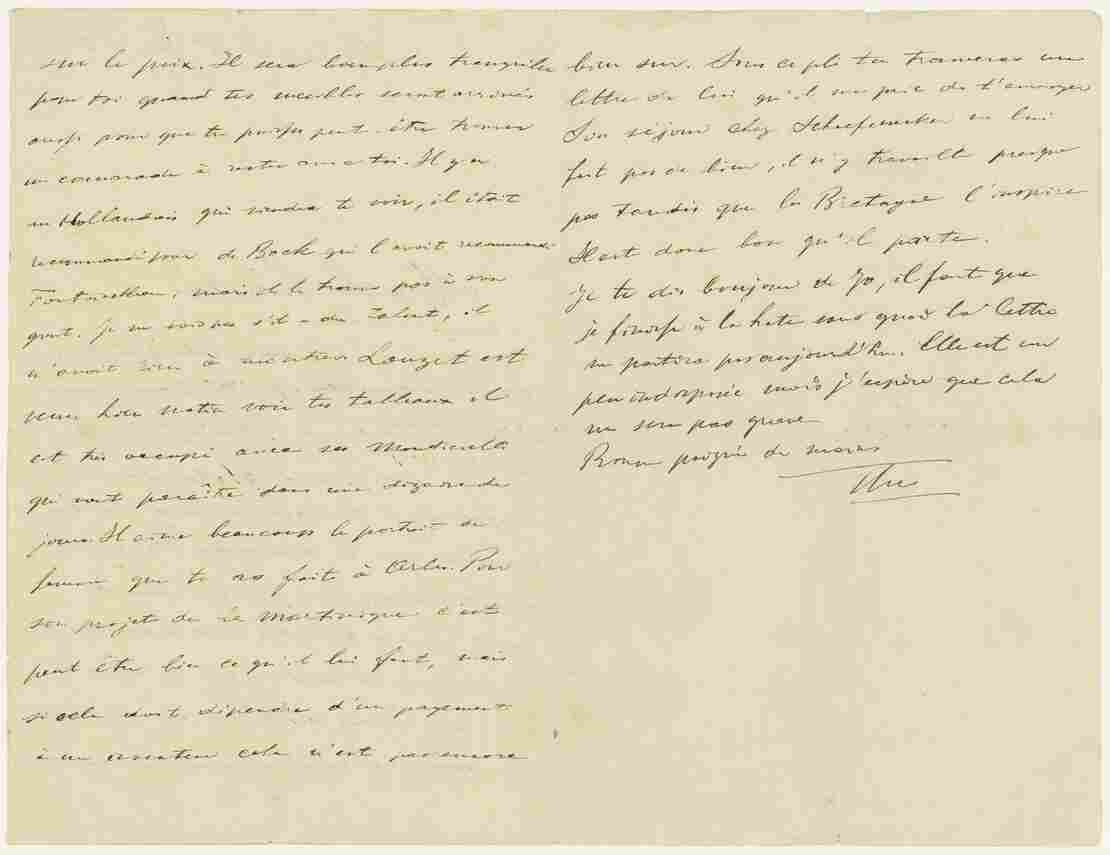 sur le prix. Il sera bien plus tranquille
pour toi quand tes meubles seront arrivés
aussi pour que tu puisses peut-être trouver
un camarade à rester avec toi. Il y a
un Hollandais qui viendra te voir, il était
recommandé par de Bock qui l'avait recommandé
mais il le trouve pas à son
gout. Je ne sais pas s'il a du talent, il
n'avait rien à montrer Lauzet est
venu hier matin voir tes tableaux il
est très occupé avec ses Monticellis
qui vont paraitre dans une dizaine de
jours. Il aime beaucoup le portrait de
femme que tu as faite à Arles. Pour
son projet de la Martinique c'est
peut être bien ce qu'il lui faut, mais
si cela doit dépendre d'un payement
à un cela n'est pas encore
bien sur. Sous ce pli tu trouveras une
lettre de lui qu'il me prie de t'envoyer
Son séjour chez Schuffenecker ne lui
fait pas de bien, il n'y travaille presque
pas tandis que la Bretagne l'inspire
Il est donc bon qu'il parte.
Je te dis bonjour de Jo, il faut que
je finisse à la hate sans quoi la lettre
ne partira pas aujourd'hui. Elle est un
peu indisposée mais j'espère que cela
ne sera pas grave
Bonne poignée de mains
Theo